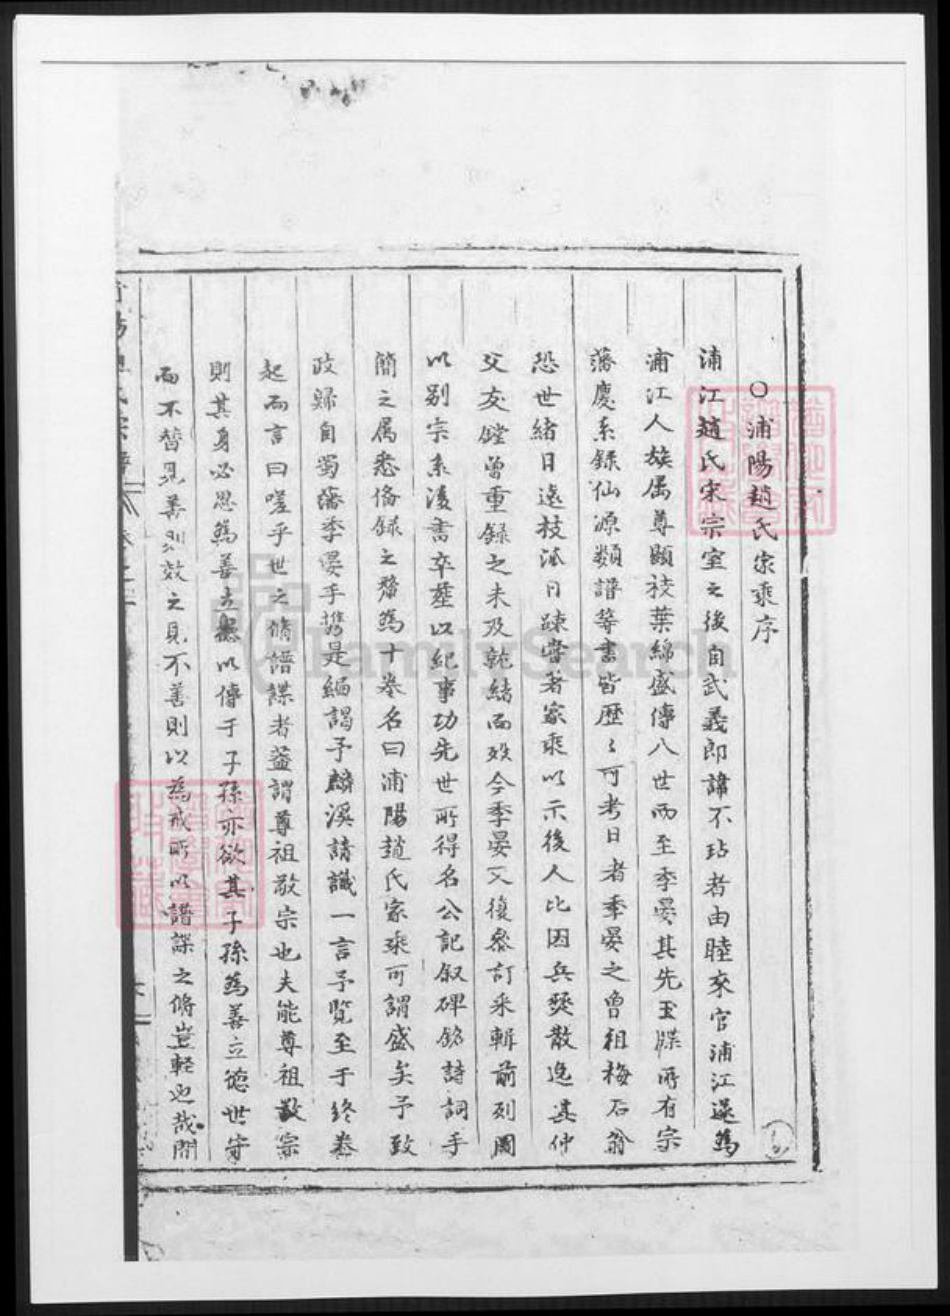 ○浦陽趙氏家乘序
浦江趙氏宋宗室之後自武義郎諱不玷者由睦來官浦江遂爲
浦江人族属尊顯枝葉綿盛傳八世而至季晏其先玉牒所有宗
藩慶系録仙源類譜等書皆歷〻可考日者季晏之曾祖梅石翁
恐世緒日遠枝派日踈嘗著家乘以示後人比因兵燹散逸其仲
父友鏜曾重録之未及就緒而殁今季晏又復叅訂采輯前列圖
以别宗系後書卒塟以紀事功先世所得名公記叙碑銘詩詞手
簡之属悉俻録之釐爲十卷名曰浦陽趙氏家乘可謂盛矣予致
政歸自蜀藩季晏手攜是編謁予麟溪請識一言予覧至于終卷
起而言曰嗟乎世之脩譜諜者葢謂尊祖敬宗也夫能尊祖敬宗
則其身必思爲善立德以傳于子孫亦欲其子孫爲善立德世守
而不替見善則效之見不善則以爲戒所以譜諜之脩豈輕也哉間
FamilySearch